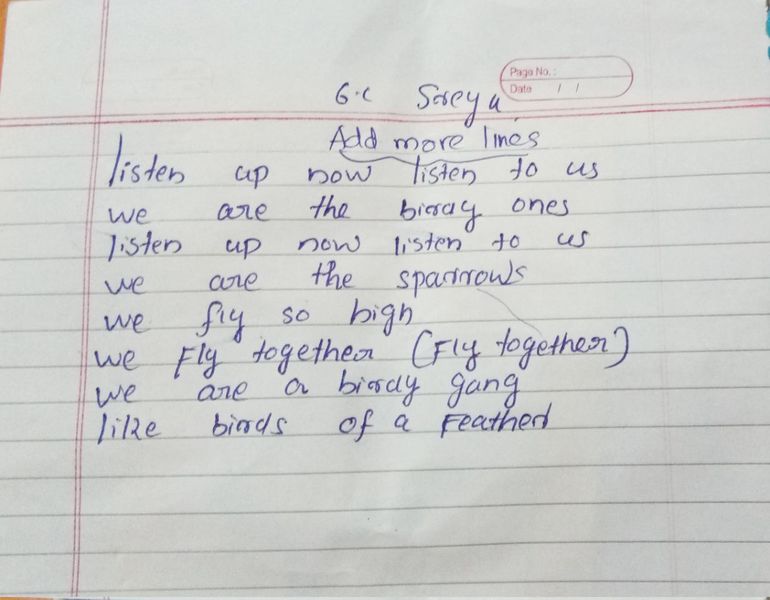 Page No. :
Date / /
6.c Soreya
Add more lines
listen up now listen to us
we are the birdy ones
listen up now listen to us
we are the sparrows
we fly so high
we Fly together (Fly together)
we are a birdy gang
like birds of a Feather